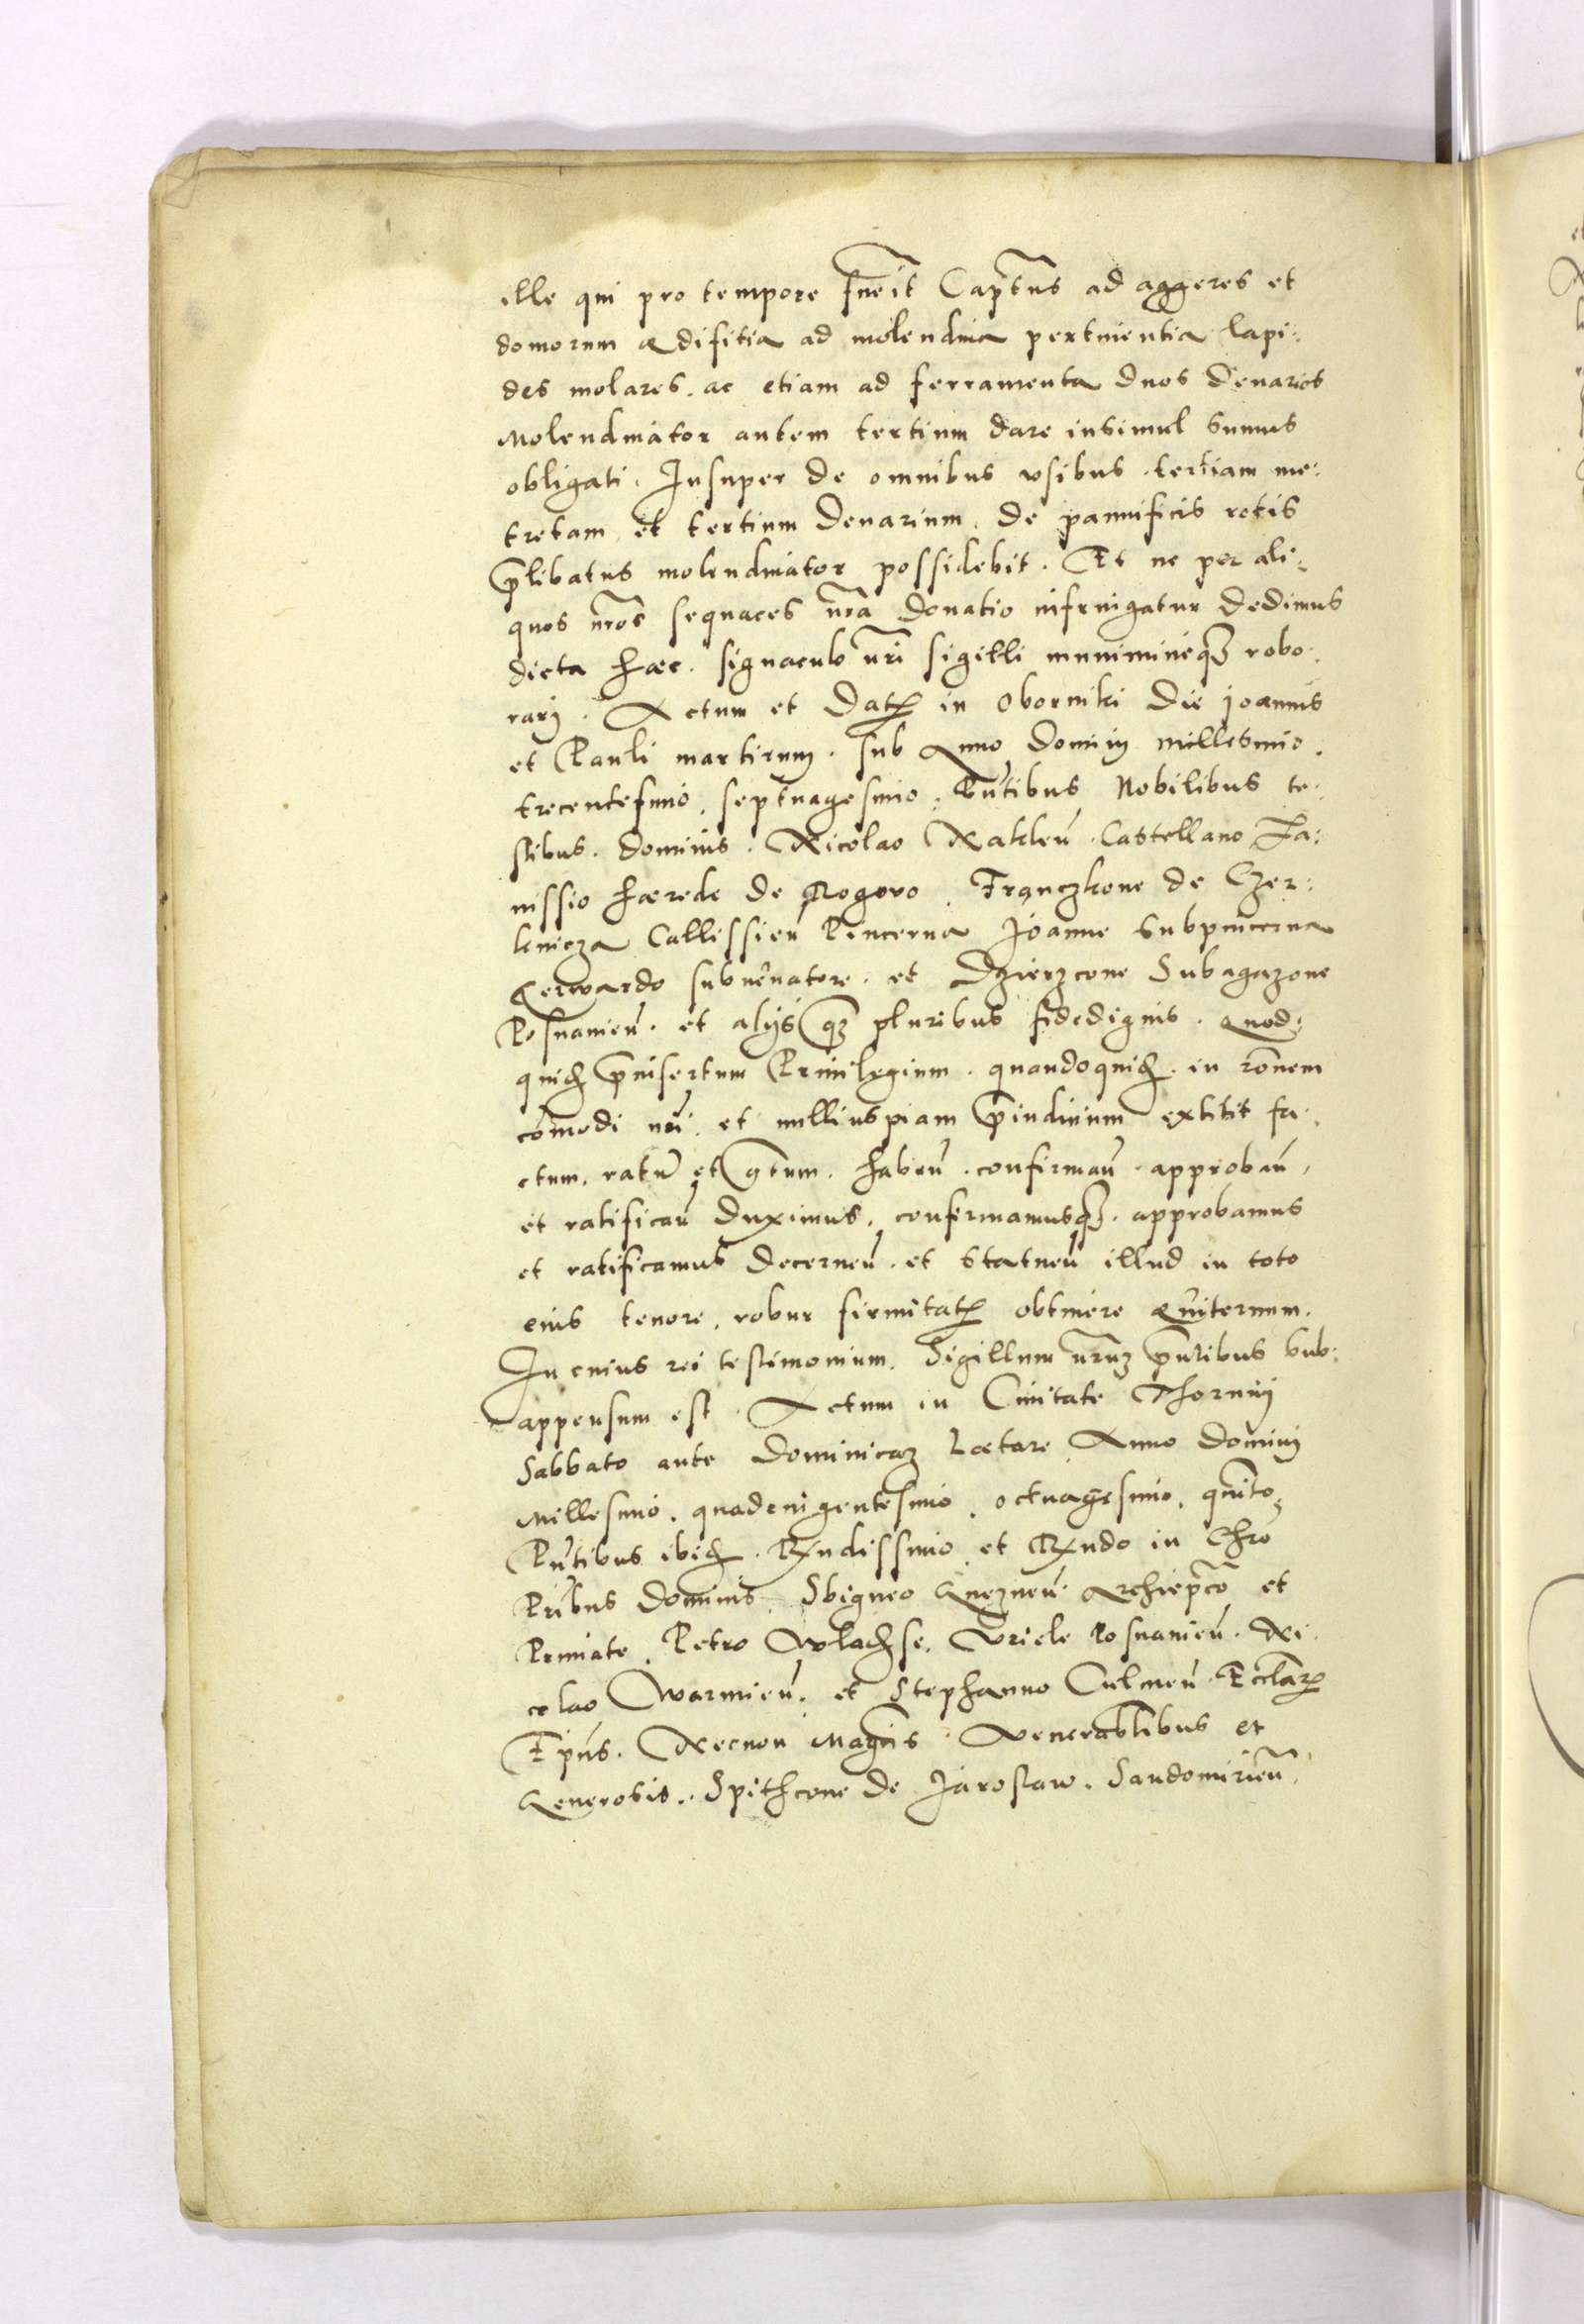 ille qui pro tempore fuerit Capt̃us ad aggeres et
domorum ædifitia ad molendina pertinentia lapi:
des molares. ac etiam ad ferramenta duos denarios
Molendinator autem tertium dare insimul sumus
obligati. Insuper de omnibus vsibus tertiam me:
tretam et tertium denarium. de pannificis rotis
p̃libatus molendinator possidebit. Et ne per ali:
quos nr̃os sequaces nr̃a donatio infringatur dedimus
dicta hæc. signaculo nr̃i sigilli munimineq3 robo:
rarj. Actum et Dat. in Oborniki Die joannis
et Pauli martirum. sub Anno Dominj millesimo.
trecentesimo. septuagesimo. Pñtibus Nobilibus te:
stibus. dominis. Nicolao Nakleñ. Castellano Ja:
nissio hærede de Rogovo. Franczkone de Czer:
lenicza Callissieñ Pincerna Joanne Subpincerna
Gerwardo subvenatore. et Dzierzcone Subagazone
Posnanieñ. et alijs q3 pluribus fidedignis. Quod:
quid. p̃insertum Priuilegium. quandoquid. in rõnem
cõmodi nr̃i. et nulliuspiam p̃iudicium extitit fa:
ctum. ratũ et g̃tum. habeñ. confirmañ. approbañ.
et ratificañ duximus. confirmamusq3. approbamus
et ratificamus decerneñ. et statueñ illud in toto
eius tenore. robur firmitat. obtinere æuiternum.
In cuius rei testimonium. Sigillum nr̃um p̃ntibus sub:
appensum est. Actum in Ciuitate Thorunij
Sabbato ante Dominicam Lætare Anno Dominj
Millesimo. quadringentesimo. octuagesimo. quinto.
Pñtibus ibid. Rx̃ndissimo et Rx̃ndo in Chrõ
Pr̃ibus Dominis. Sbigneo Gnezneñ. Archiep̃co et
Primate. Petro Wladse. Vriele Posnanieñ. Ni:
colao Warmieñ. et Stephanno Culmeñ. Eccl̃ar.
Ep̃us. Necnon Mag̃cis. Venerabl̃ibus et
Generosis. Spithcone de Jaroslaw. Sandomirieñ.